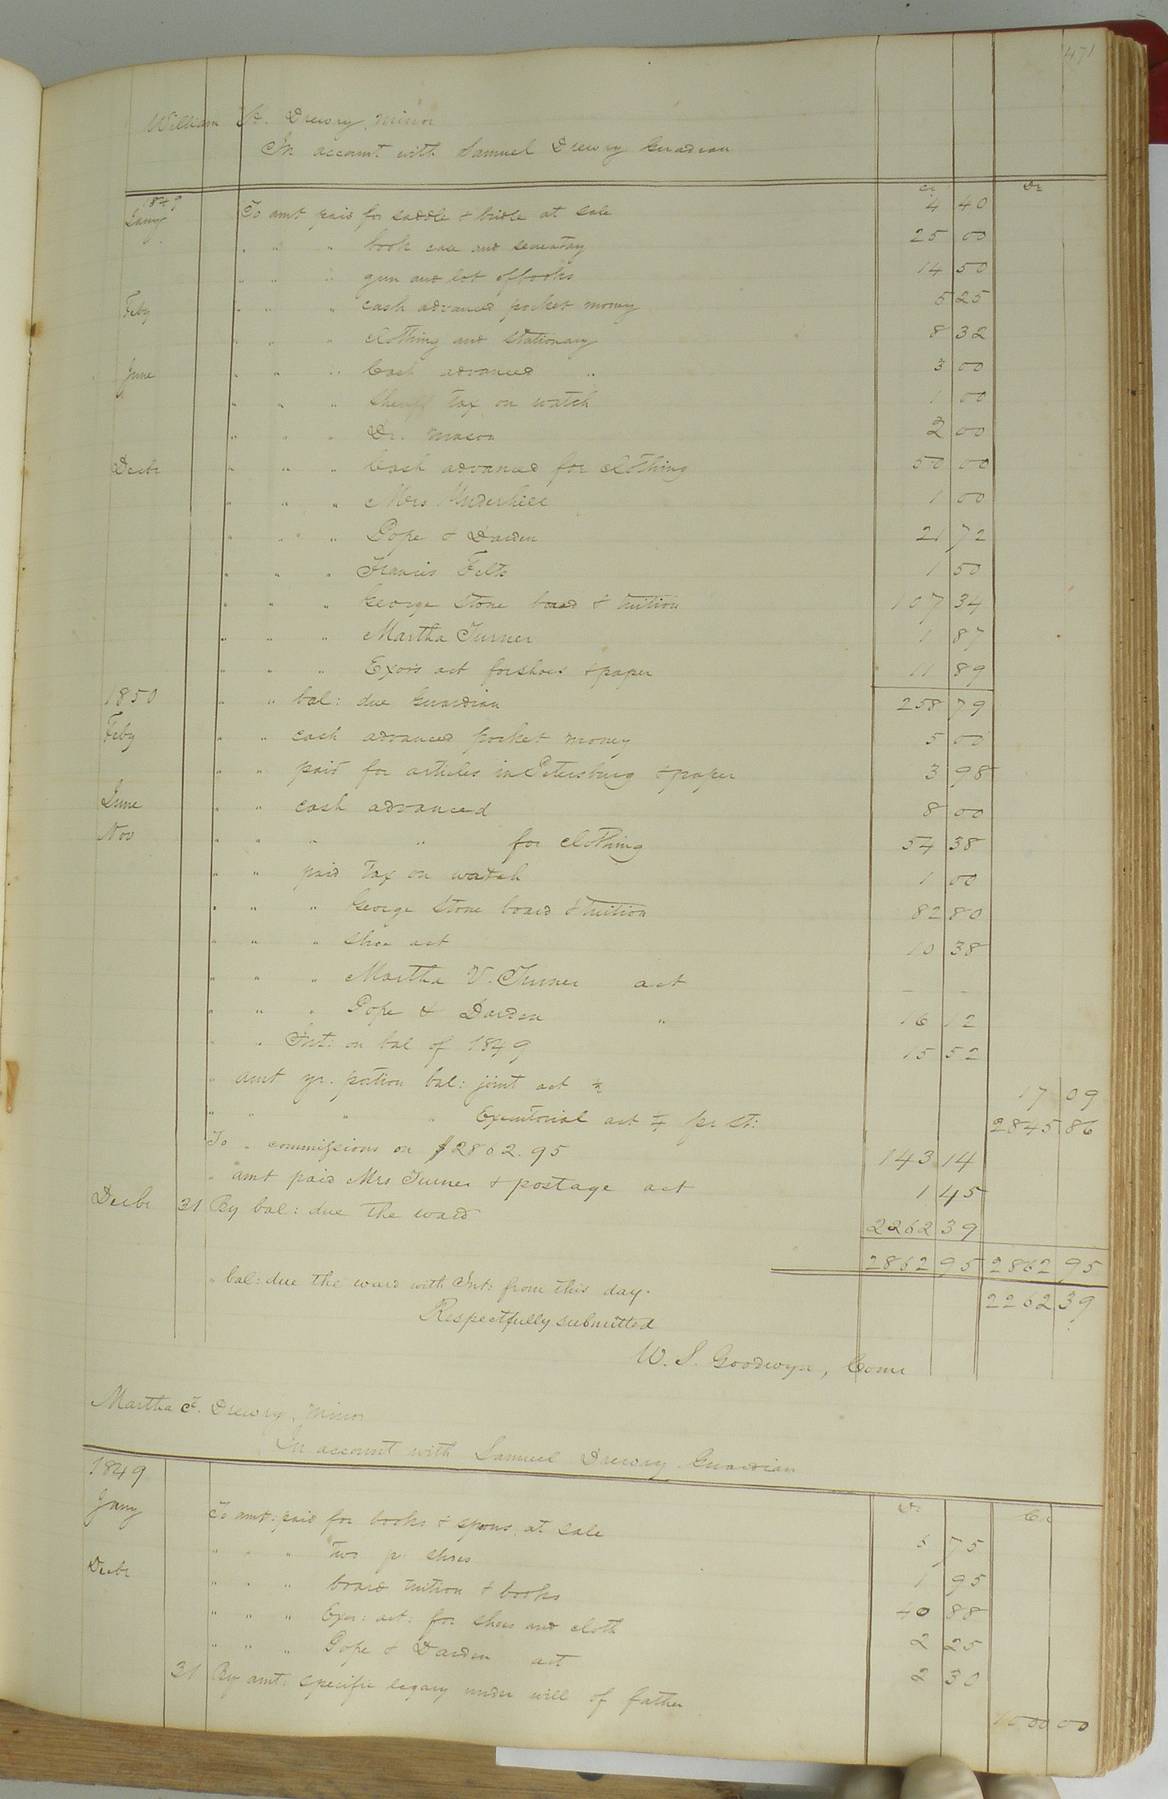 471
William H. Drewry, minor
In account with Samuel Drewry Guardian
cr Dr
1849
Jany To amt paid for saddle & bridle at sale 4 40
" " " book case and secretary 25 00
" " " gun and lot of books 14 50
Feby " " " cash advanced pocket money 5 25
" " " clothing and stationary 8 32
June " " " Cash advanced " 3 00
" " " Sheriff tax on watch 1 00
" " " Dr. Mason 2 00
Decbr " " " Cash advanced for clothing 50 00
" " " Mrs Underhill 1 00
" " " Pope & Darden 21 72
" " " Francis Felts 1 50
" " " George Stone board & tuition 107 34
" " " Martha Turner 1 87
" " " Exors act for shoes & paper 11 89
1850 " " bal: due Guardian 258 79
Feby " " cash advanced pocket money 5 00
" " paid for articles in Petersburg & paper 3 98
June " " cash advanced 8 00
Nov " " " " for clothing 54 38
" " paid tax on watch 1 00
" " " George Stone board & tuition 82 80
" " " shoe act 10 38
" " " Martha V. Turner act - -
" " " Pope & Darden " 16 12
" " Int: on bal of 1849 15 52
" amt yr. portion bal: joint act 17 09
" " " " Executorial act pr st: 2845 86
To " commissions on $2862.95 143 14
" amt paid Mrs Turner & postage act 1 45
Decbr 31 By bal: due the ward 2262 39
2862 95 2862 95
" bal: due the ward with Int: from this day. 2262 39
Respectfully submitted
W. S. Goodwyn, Comr
Martha F. Drewry, minor
In account with Samuel Drewry Guardian
1849 Dr Cr
Jany To amt: paid for books & spoons at sale 5 75
" " " two pr shoes 1 95
Decbr " " " board tuition & books 40 88
" " " Exor: act: for shoes and cloth 2 25
" " " Pope & Darden act 2 30
31 By amt: specific legacy under will of father 1000 00